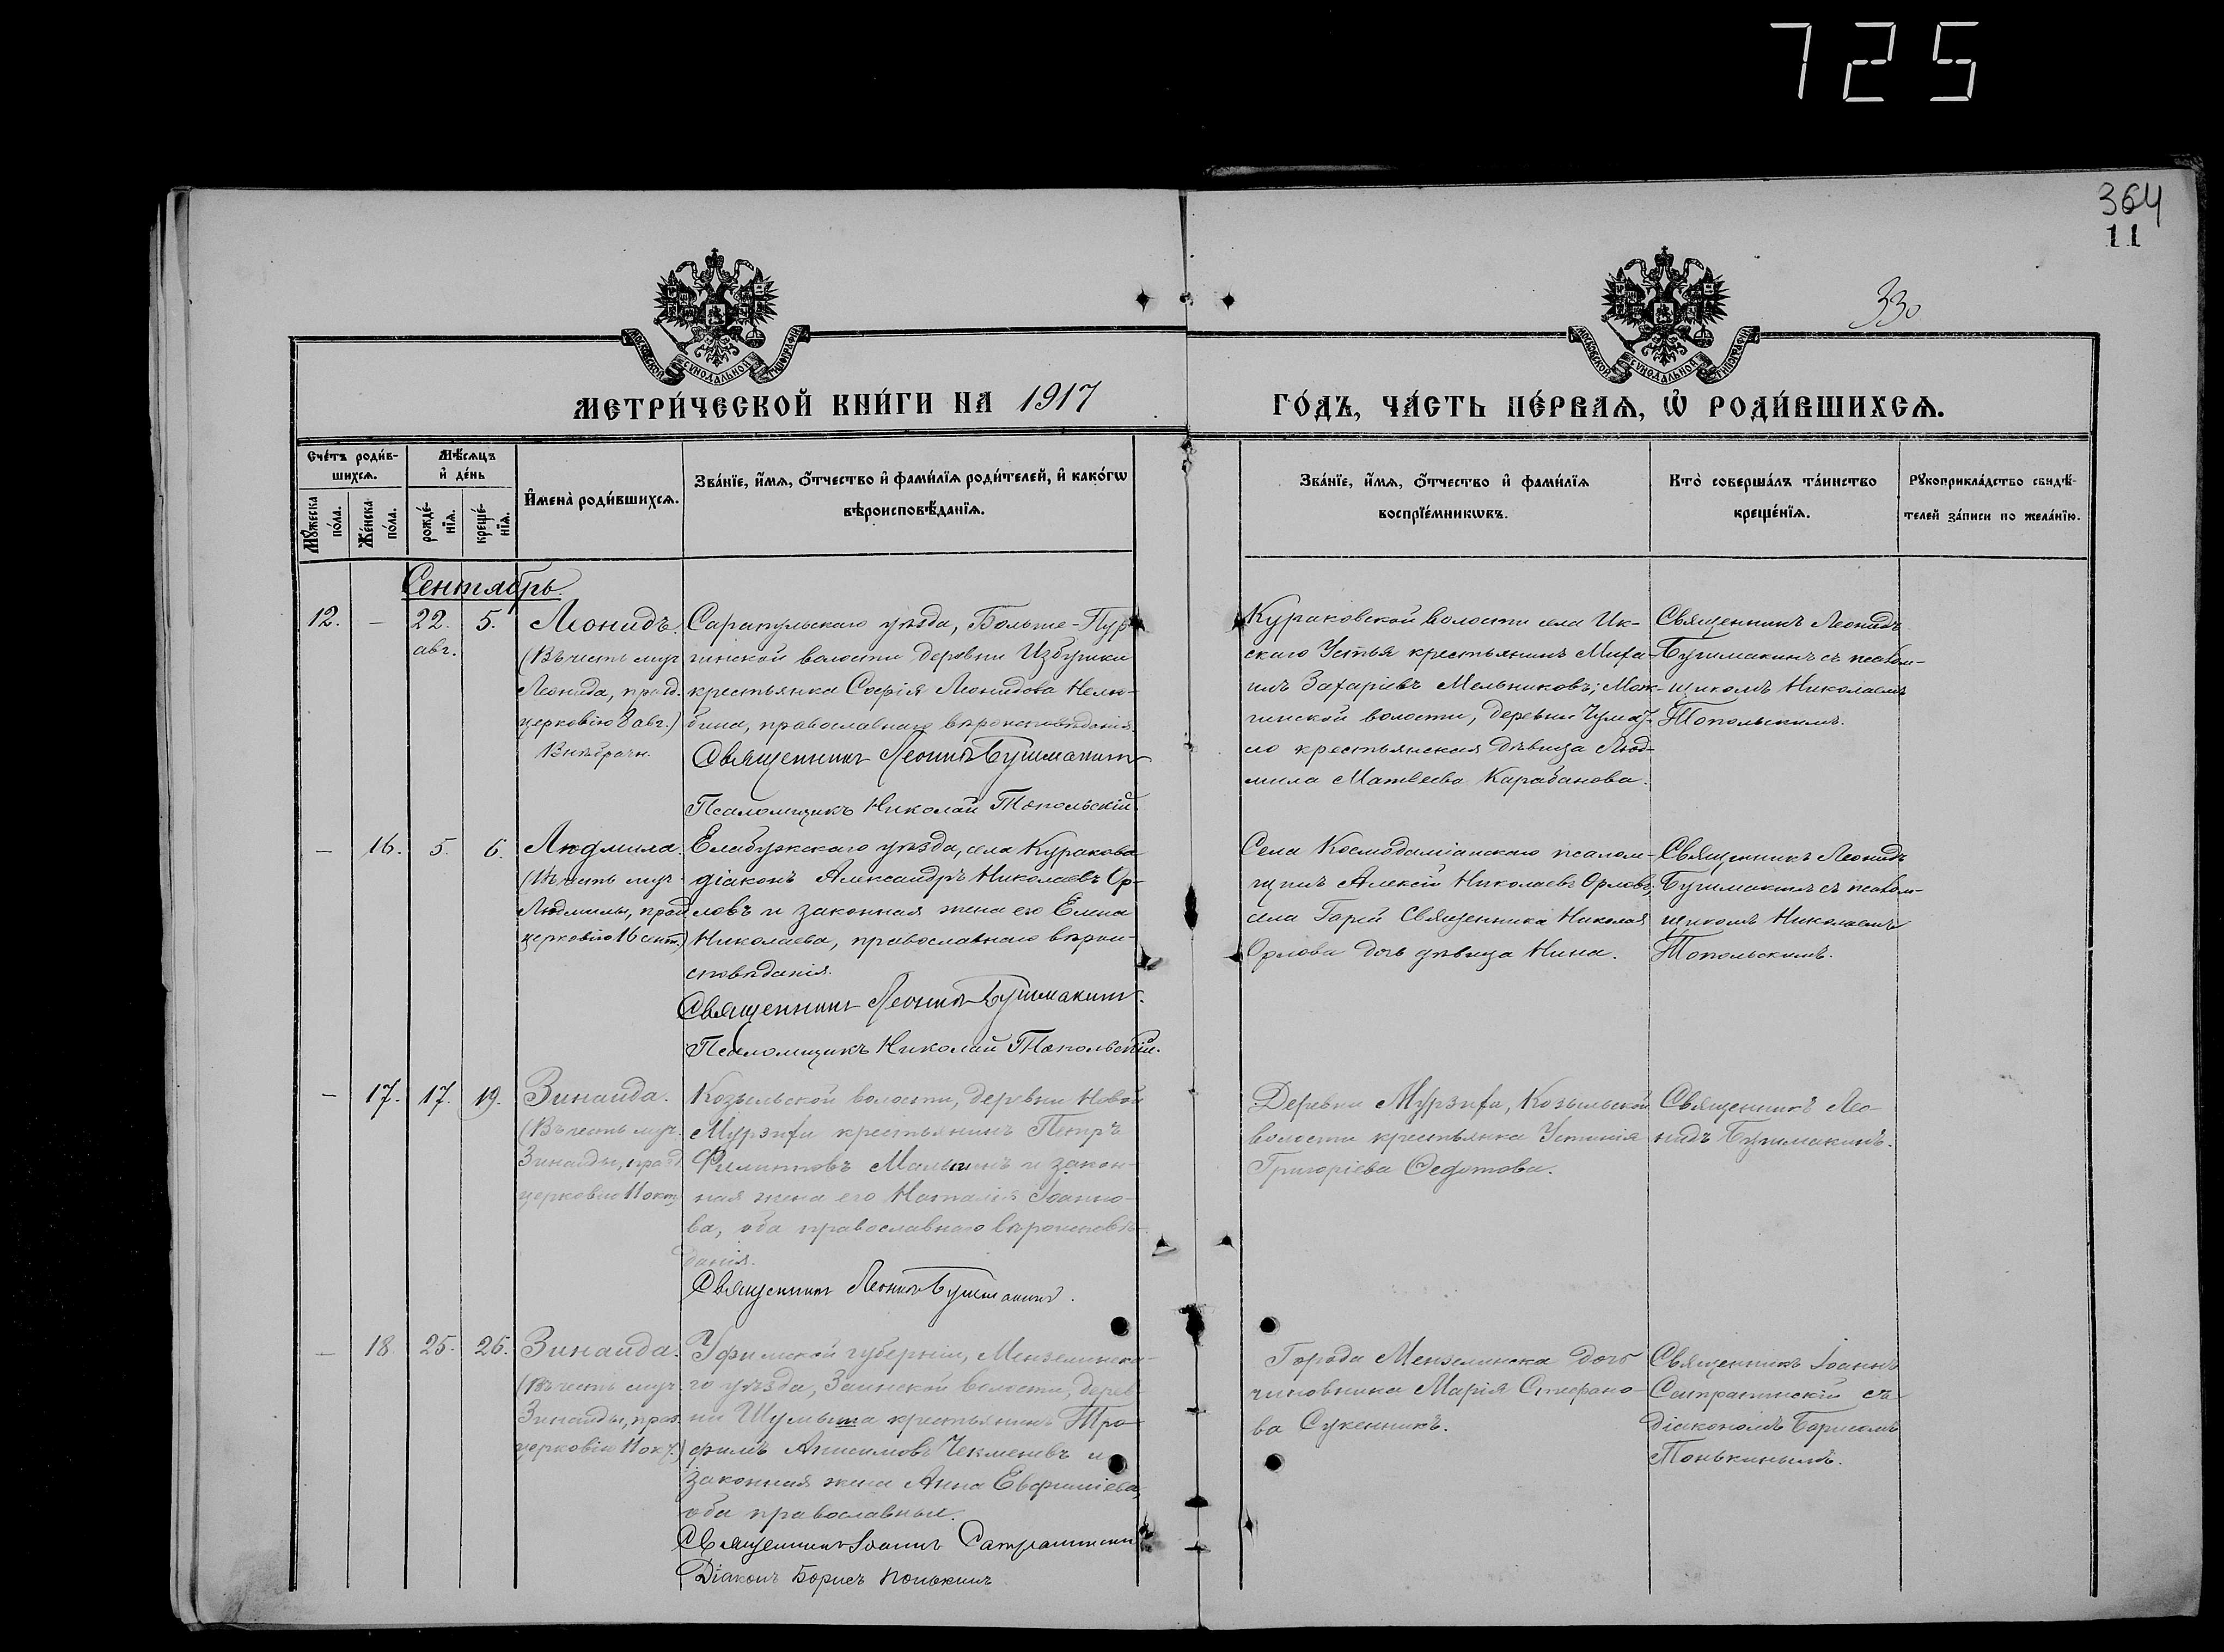 725
364
11
330
МОСКОВСКОЙ СѴНОДАЛЬНОЙ ТИПОГРАФІИ
МОСКОВСКОЙ СѴНОДАЛЬНОЙ ТИПОГРАФІИ
МЕТРИ́ЧЕСКОЙ КНИ́ГИ НА 1917
ГО́ДЪ, ЧА́СТЬ ПЕ́РВАѦ, Ѡ҆ РОДИ́ВШИХСѦ.
Сче́тъ роди́в-
шихсѧ.
Мꙋ́жеска
по́ла.
Же́нска
по́ла.
Мѣ́сѧцъ
и҆ де́нь
рожде́-
нїѧ.
креще́-
нїѧ.
И҆мена̀ роди́вшихсѧ.
Зва́нїе, и҆́мѧ, ѻ҆́тчество и҆ фами́лїѧ роди́телей, и҆ како́гѡ
вѣроисповѣ́данїѧ.
Зва́нїе, и҆́мѧ, ѻ҆́тчество и҆ фами́лїѧ
воспрїе́мникѡвъ.
Кто̀ соверша́лъ та́инство
креще́нїѧ.
Рꙋкоприкла́дство свидѣ́-
телей за́писи по жела́нїю.
Сентябрь.
12.
–
22.
авг.
5.
Леонидъ.
(Въ честь муч.
Леонида, празд.
церковію 8 авг.)
Внѣбрачн.
Сарапульскаго уѣзда, Больше-Пур-
гинской волости деревни
крестьянка Софія Леонидова Нелю-
бина, православнаго вѣроисповѣданія.
Священникъ Леонидъ Бушмакинъ
Псаломщикъ Николай Топольскій.
Кураковской волости села Ик-
скаго Устья крестьянинъ Миха-
илъ Захаріевъ Мельниковъ; Мож-
гинской волости, деревни
ло крестьянская дѣвица Люд-
мила Матвеева Карабанова.
Священникъ Леонидъ
Бушмакинъ съ псалом-
щикомъ Николаемъ
Топольскимъ.
–
16.
5.
6.
Людмила.
(Въ честь муч.
Людмилы, празд
церковію 16 сент.)
Елабужскаго уѣзда, села Куракова
діаконъ Александръ Николаевъ Ор-
ловъ и законная жена его Елена
Николаева, православнаго вѣрои-
сповѣданія.
Священникъ Леонидъ Бушмакинъ.
Псаломщикъ Николай Топольскій.
Села Космодаміанскаго псалом-
щикъ Алексій Николаевъ Орловъ;
села Гарей Священника Николая
Орлова дочь дѣвица Нина.
Священникъ Леонидъ
Бушмакинъ съ псалом-
щикомъ Николаемъ
Топольскимъ.
–
17.
17.
19.
Зинаида.
(Въ честь муч.
Зинаиды, празд
церковію 11 окт)
Козыльской волости, деревни Новой
Мурзихи крестьянинъ Петръ
Филипповъ Малыгинъ и закон-
ная жена его Наталія Іоанно-
ва, оба православнаго вѣроисповѣ-
данія.
Священникъ Леонидъ Бушмакинъ.
Деревни Мурзихи, Козыльской
волости крестьянка Устинія
Григоріева Федотова.
Священникъ Лео-
нидъ Бушмакинъ.
–
18.
25.
26.
Зинаида.
(Въ честь муч.
Зинаиды, праз.
церковію 11 окт.)
Уфимской губерніи, Мензелинска-
го уѣзда, Заинской волости, дерев-
ни крестьянинъ Тро-
фимъ Анисимовъ Чекменевъ и
законная жена Анна Евфиміева,
оба православные.
Священникъ Іоаннъ Сатрапинскій
Діаконъ Борисъ Понькинъ
Города Мензелинска дочь
чиновника Марія Стефано-
ва Сукенникъ.
Священникъ Іоаннъ
Сатрапинскій съ
діакономъ Борисомъ
Понькинымъ.